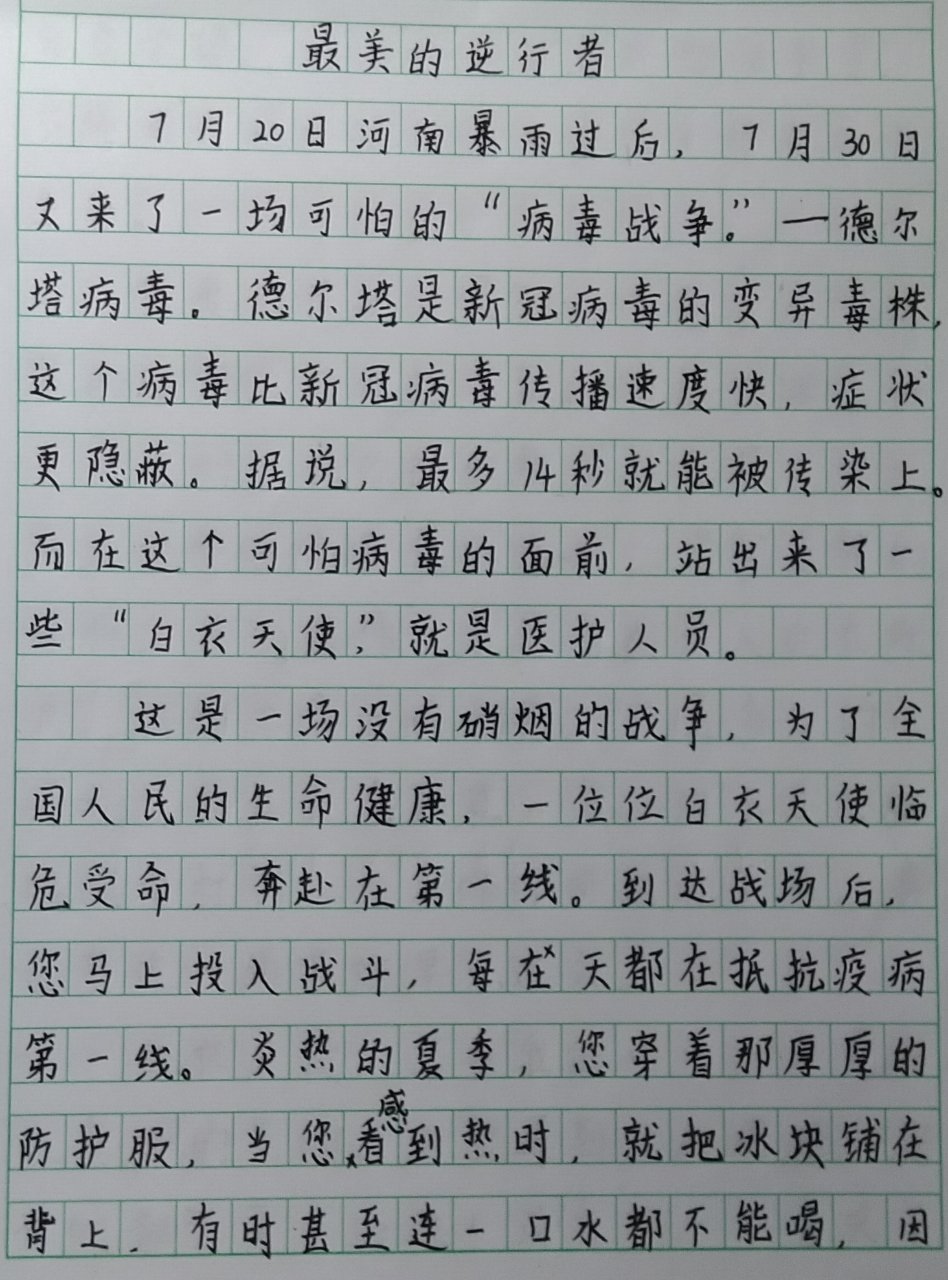 最美的逆行者
7月20日河南暴雨过后，7月30日
又来了一场可怕的“病毒战争”。—德尔
塔病毒。德尔塔是新冠病毒的变异毒株，
这个病毒比新冠病毒传播速度快，症状
更隐蔽。据说，最多14秒就能被传染上。
而在这个可怕病毒的面前，站出来了一
些“白衣天使”，就是医护人员。
这是一场没有硝烟的战争，为了全
国人民的生命健康，一位位白衣天使临
危受命，奔赴在第一线。到达战场后，
您马上投入战斗，每在天都在抵抗疫病
第一线。炎热的夏季，您穿着那厚厚的
防护服，当您看感到热时，就把冰块铺在
背上，有时甚至连一口水都不能喝，因